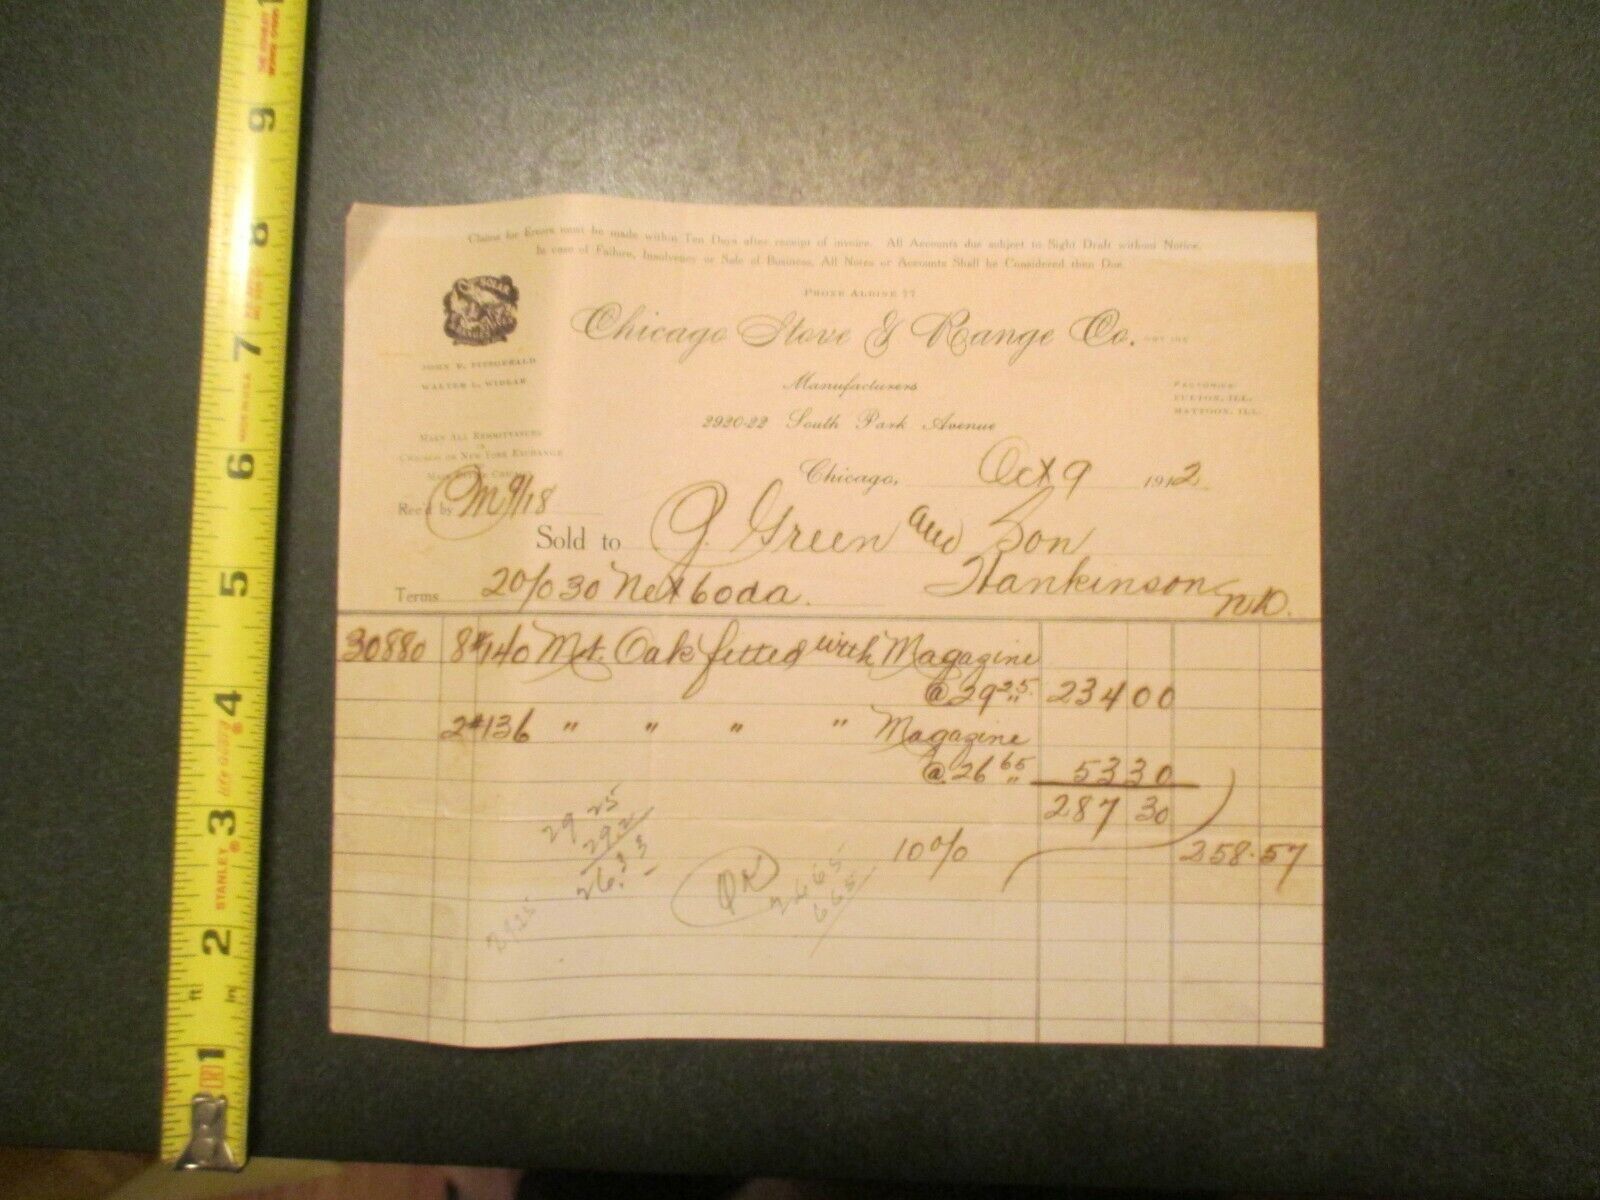 Claims for Errors must be made within Ten Days after receipt of invoice. All Accounts due subject to Sight Draft without Notice.
In case of Failure, Insolvency or Sale of Business, All Notes or Accounts Shall be Considered then Due.
PHONE ALDINE 77
Chicago Stove & Range Co.
JOHN F. FITZGERALD
WALTER L. WIDLAR
Manufacturers
2920-22 South Park Avenue
FACTORIES
FULTON, ILL.
MATTOON, ILL.
MAKE ALL REMITTANCES
IN
CHICAGO OR NEW YORK EXCHANGE
Chicago, Oct 9 1912
Rec'd by M 9/18
Sold to G. Green and Son
Hankinson N.D.
Terms 2% 30 Net 60 da.
30880 8 # 140 Mt. Oak fitted with Magazine
@ 29 25 234 00
2 # 136 " " " " Magazine
@ 26 65 53 30
287 30
10% 258.57
29 25
29 2
26.33
2925
OK
26 65
665
1 2 3 4 5 6 7 8 9
ft in
STANLEY
MADE IN U.S.A.